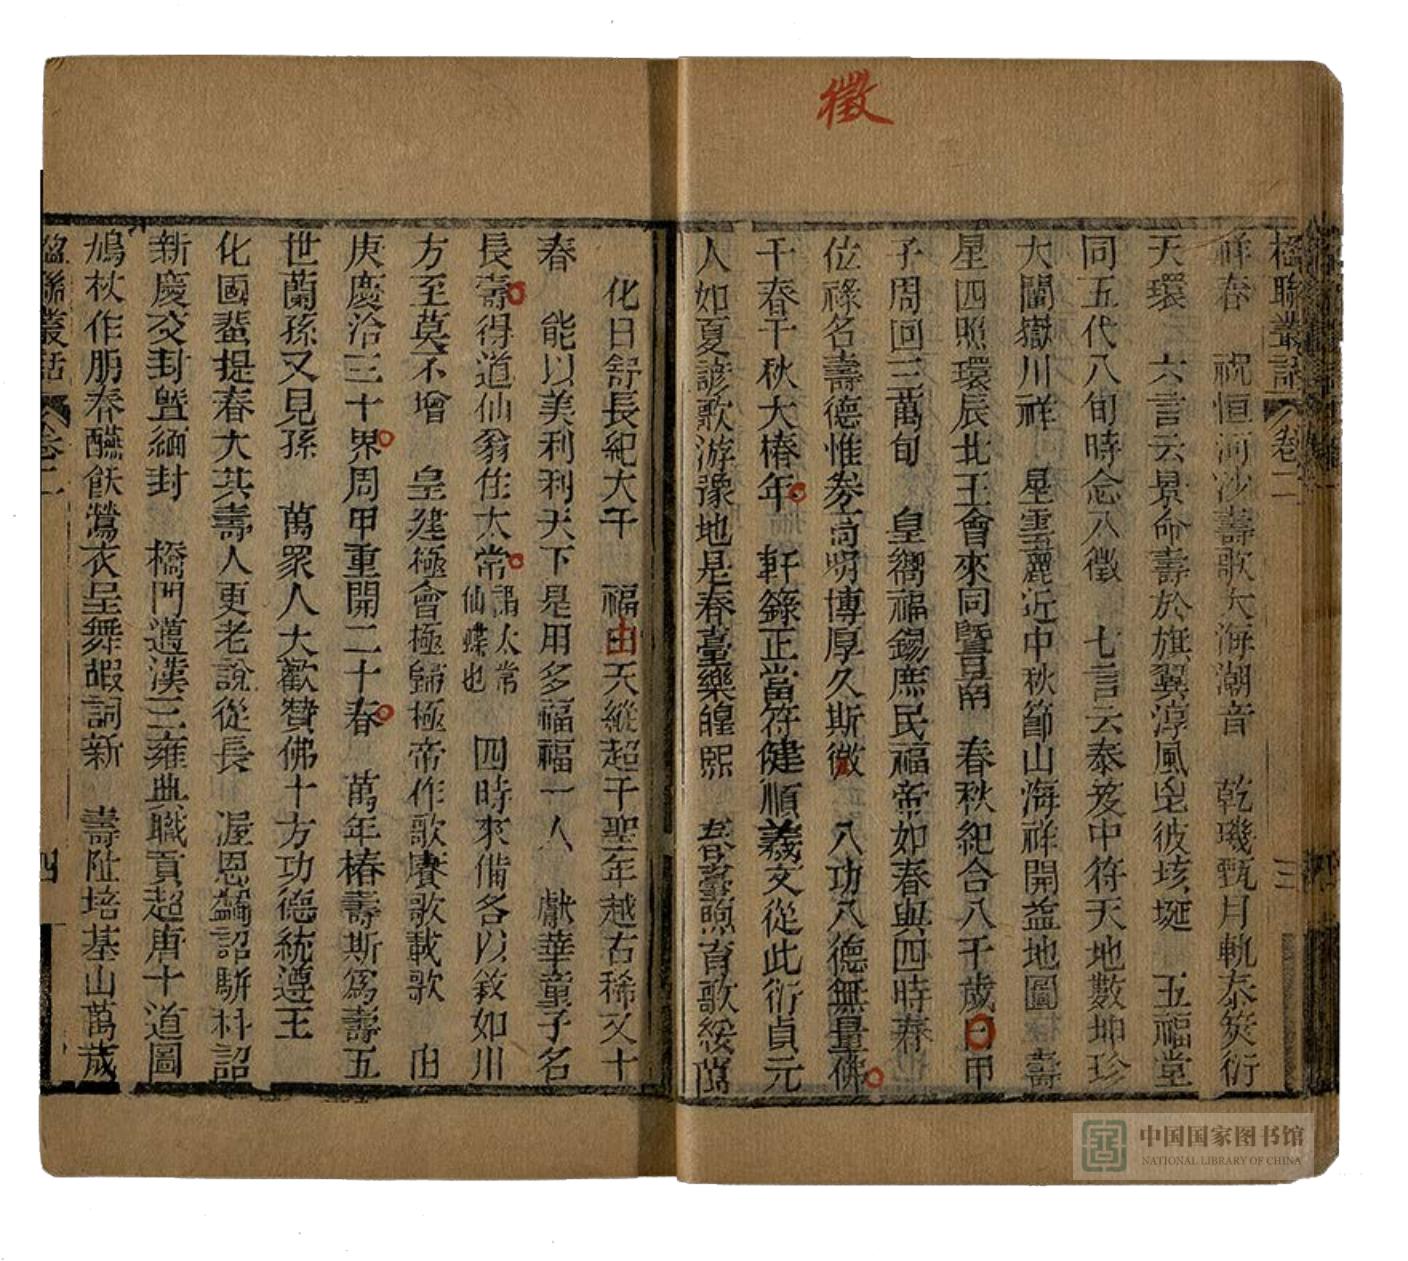 徵
楹聯叢話 卷二 三
祥春　祝恒河沙壽歌大海潮音　乾璣甄月軌泰筴衍
天環　六言云景命壽於旗翼淳風邕彼垓埏　五福堂
同五代八旬時念八徵　七言云泰筴中符天地數坤珍
大闡嶽川祥　星雲麗近中秋節山海祥開益地圖　壽
星四照環辰北王會來同曁昌南　春秋紀合八千歲日甲
子周回三萬旬　皇嚮福錫庶民福帝如春與四時春
位祿名壽德惟參高明博厚久斯徵　八功八德無量佛
千春千秋大椿年　軒籙正當符健順羲文從此衍貞元
人如夏諺歌游豫地是春臺樂皥熙　春臺煦育歌綏萬
化日舒長紀大千　福由天縱超千聖年越古稀又十
春　能以美利利天下是用多福福一人　獻華童子名
長壽得道仙翁住太常謂太常仙蝶也　四時來備各以敘如川
方至莫不增　皇建極會極歸極帝作歌賡歌載歌　由
庚慶洽三十界周甲重開二十春　萬年椿壽斯爲壽五
世蘭孫又見孫　萬眾人大歡贊佛十方功德統遵王
化國蜚提春大其壽人更老說從長　渥恩繙詔駢科詔
新慶交封曁緬封　橋門邁漢三雍典職貢超唐十道圖
鳩杖作朋春醼飫鶯衣呈舞嘏詞新　壽阯培基山萬歲
楹聯叢話 卷二 四
中国国家图书馆
NATIONAL LIBRARY OF CHINA